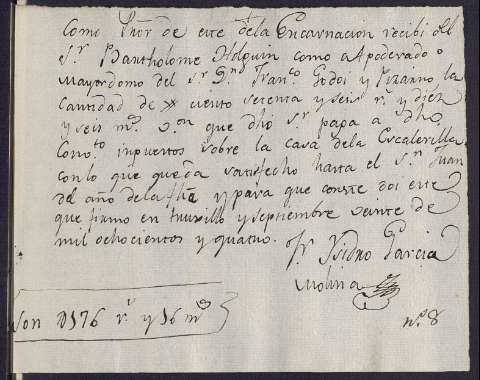 Como Prior de este dela Encarnacion recibi del
Sr. Bartholome Holguin como apoderado o
Mayordomo del Sr. Dn. Franco. Godoi y Pizarro la
Cantidad de ciento setenta y seis rs. y diez
y seis ms. von. que dho Sr. paga a dho
Convto. inpuestos sobre la casa dela Escalerilla
con lo que queda satisfecho hasta el Sn. Juan
del año dela fha y para que conste doi este
que firmo en truxillo y septiembre veinte de
mil ochocientos y quatro.
Fr. Ysidro Garcia
Molina
Son 176 rs. y 16 ms.
No. 8